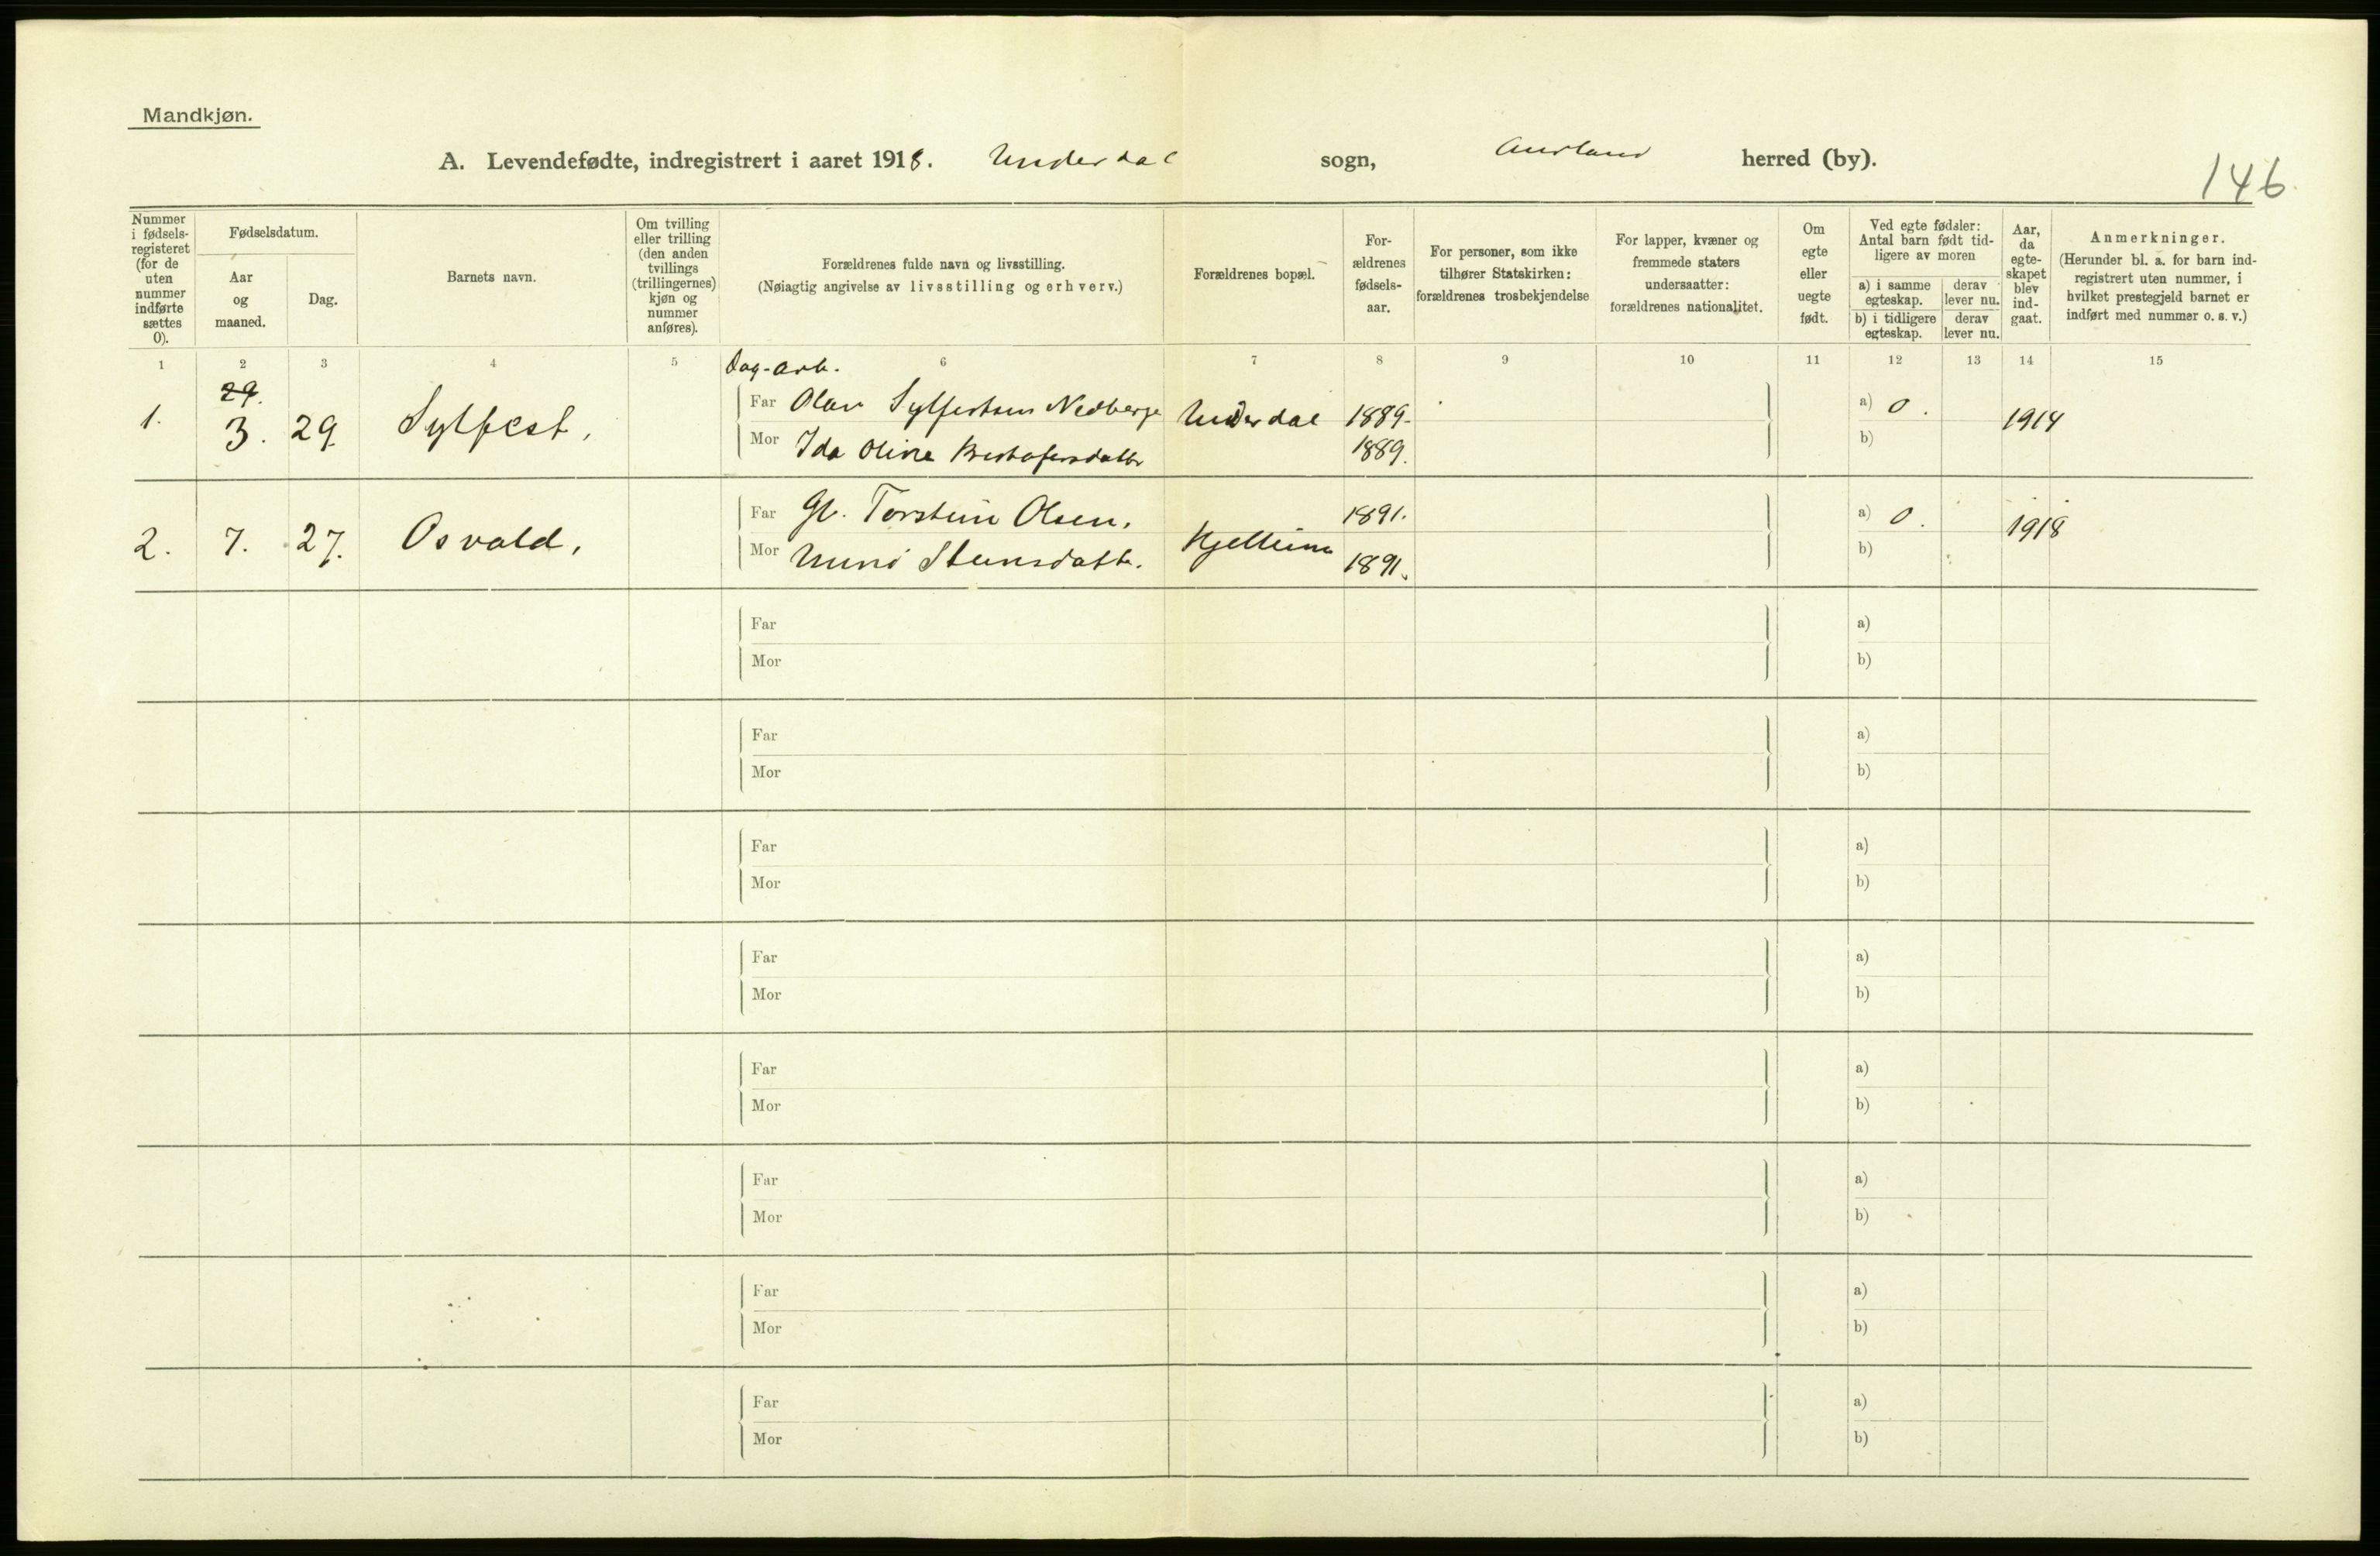 Mandkjøn.
A. Levendefødte, indregistrert i aaret 1918. Underdal sogn, Aurland herred (by).
146
Nummer i fødsels-registeret (for de uten nummer indførte sættes 0).
Fødselsdatum.
Aar og maaned.
Dag.
Barnets navn.
Om tvilling eller trilling (den anden tvillings (trillingernes) kjøn og nummer anføres).
Forældrenes fulde navn og livsstilling.
(Nøiagtig angivelse av livsstilling og erhverv.)
Forældrenes bopæl.
For-ældrenes fødsels-aar.
For personer, som ikke tilhører Statskirken: forældrenes trosbekjendelse
For lapper, kvæner og fremmede staters undersaatter: forældrenes nationalitet.
Om egte eller uegte født.
Ved egte fødsler: Antal barn født tid-ligere av moren
a) i samme egteskap.
derav lever nu.
b) i tidligere egteskap.
derav lever nu.
Aar, da egte-skapet blev ind-gaat.
Anmerkninger.
(Herunder bl. a. for barn ind-registrert uten nummer, i hvilket prestegjeld barnet er indført med nummer o. s. v.)
1 2 3 4 5 6 7 8 9 10 11 12 13 14 15
Dag-arb.
29.
1. 3. 29. Sylfest, Far Olav Sylfestsen Nedberge Underdal 1889. a) 0. 1914
Mor Ida Oline 1889. b)
2. 7. 27. Osvald, Far Gb. Torstein Olsen. 1891. a) 0. 1918
Mor 1891. b)
Far a)
Mor b)
Far a)
Mor b)
Far a)
Mor b)
Far a)
Mor b)
Far a)
Mor b)
Far a)
Mor b)
Far a)
Mor b)
Far a)
Mor b)